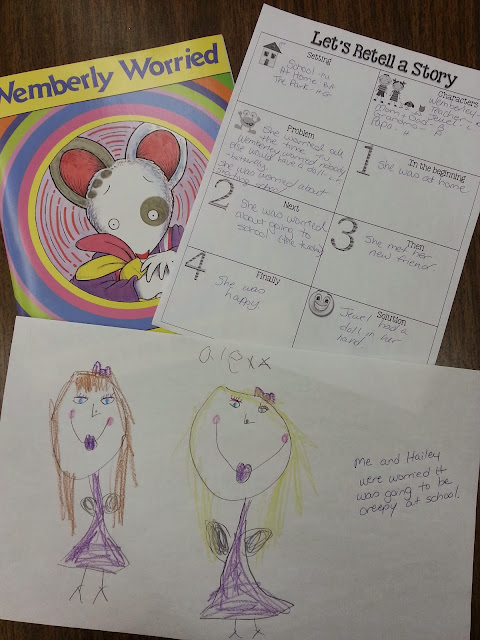 Wemberly Worried
Let's Retell a Story
Setting
School
At Home
The Park
Characters
Wemberley
Teacher
Mom + Dad
Petal
Grandma
Problem
She worried all
the time
Wemberley worried nobody
she would have a doll
She was worried about
1
In the beginning
She was at home
2
Next
She was worried
about going to
school
3
Then
She met her
new friend
4
Finally
She was
happy.
Solution
Jewel had a
doll in her
hand.
alexx
Me and Hailey
were worried it
was going to be
creepy at school.